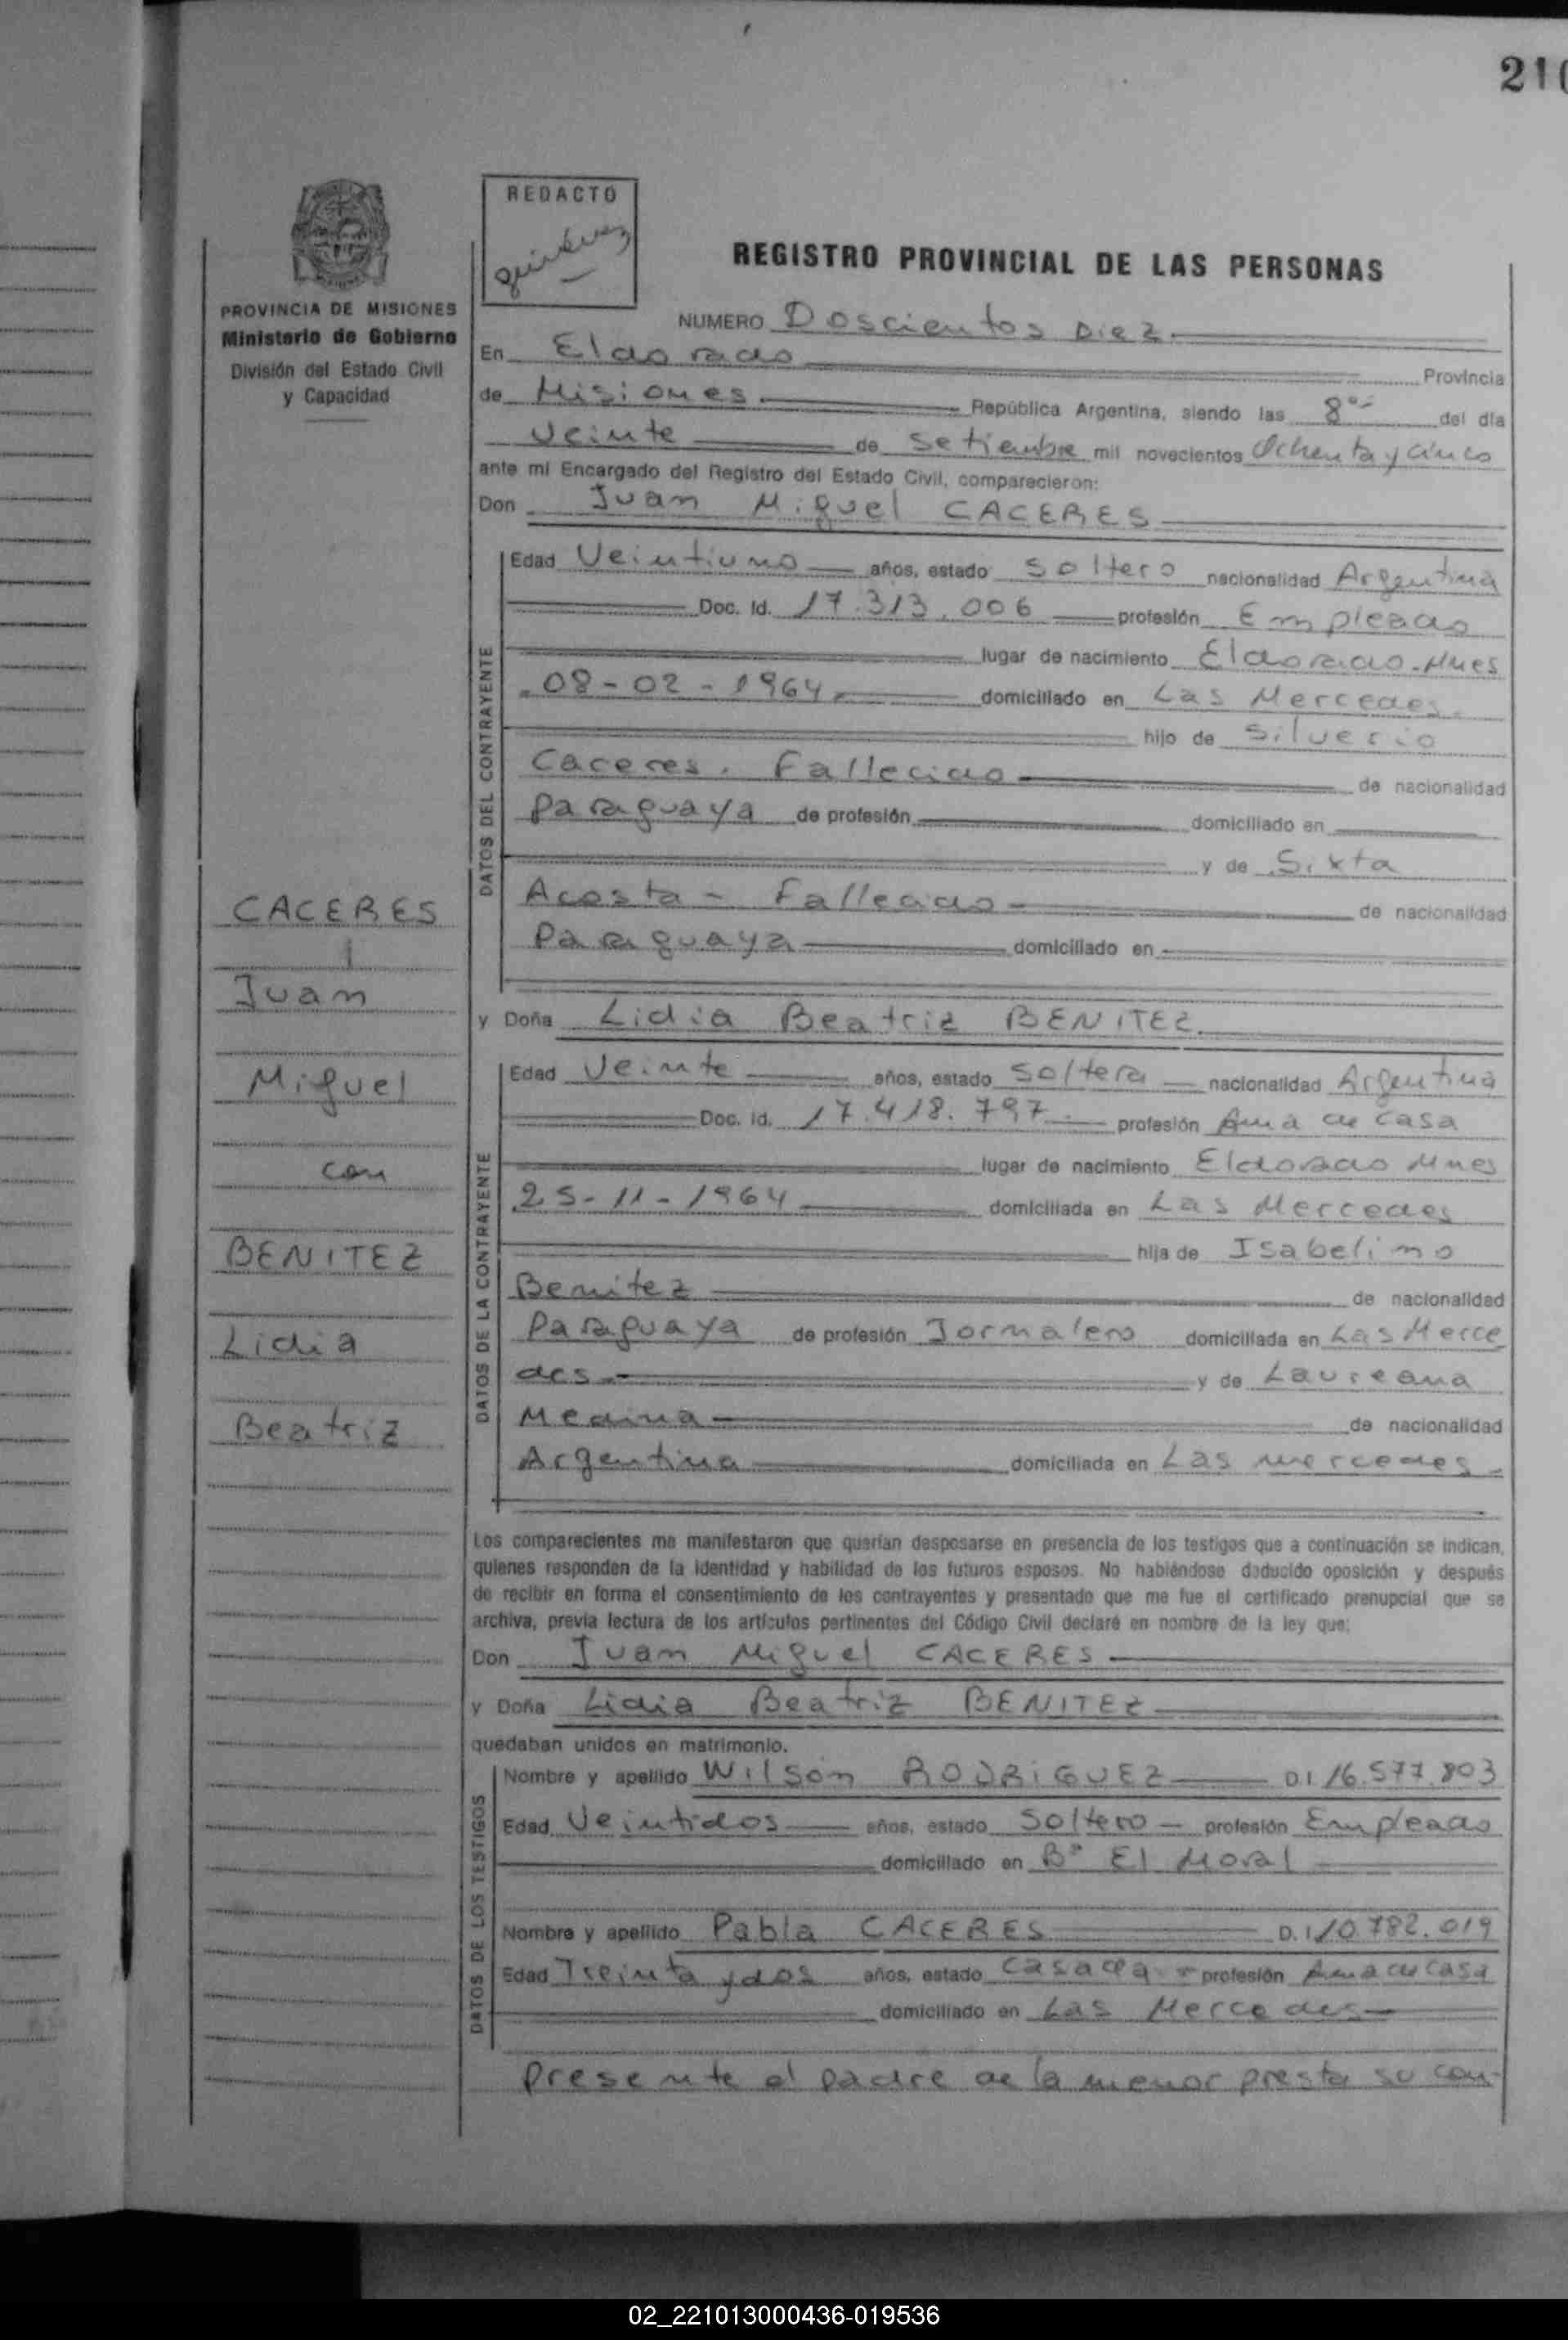 210
REDACTO
PROVINCIA DE MISIONES
Ministerio de Gobierno
División del Estado Civil
y Capacidad
REGISTRO PROVINCIAL DE LAS PERSONAS
NUMERO Doscientos Diez
En Eldorado Provincia
de Misiones República Argentina, siendo las 8 del día
Veinte de Setiembre mil novecientos Ochenta y Cinco
ante mí Encargado del Registro del Estado Civil, comparecieron:
Don Juan Miguel CACERES
DATOS DEL CONTRAYENTE
Edad Veintiuno años, estado Soltero nacionalidad Argentina
Doc. Id. 17.313.006 profesión Empleado
lugar de nacimiento Eldorado-Mnes
08-02-1964 domiciliado en Las Mercedes.
hijo de Silverio
Caceres. Fallecido de nacionalidad
Paraguaya de profesión domiciliado en
y de Sixta
Acosta - Fallecido - de nacionalidad
Paraguaya domiciliado en
y Doña Lidia Beatriz BENITEZ
DATOS DE LA CONTRAYENTE
Edad Veinte años, estado Soltera nacionalidad Argentina
Doc. Id. 17.418.797 profesión Ama de Casa
lugar de nacimiento Eldorado Mnes
25-11-1964 domiciliada en Las Mercedes
hija de Isabelino
Benitez de nacionalidad
Paraguaya de profesión Jornalero domiciliada en Las Merce
des y de Laureana
Medina de nacionalidad
Argentina domiciliada en Las Mercedes
CACERES
Juan
Miguel
con
BENITEZ
Lidia
Beatriz
Los comparecientes me manifestaron que querían desposarse en presencia de los testigos que a continuación se indican,
quienes responden de la identidad y habilidad de los futuros esposos. No habiéndose deducido oposición y después
de recibir en forma el consentimiento de los contrayentes y presentado que me fue el certificado prenupcial que se
archiva, previa lectura de los artículos pertinentes del Código Civil declaré en nombre de la ley que:
Don Juan Miguel CACERES
y Doña Lidia Beatriz BENITEZ
quedaban unidos en matrimonio.
DATOS DE LOS TESTIGOS
Nombre y apellido Wilson RODRIGUEZ D.I 16.577.803
Edad Veintidos años, estado Soltero profesión Empleado
domiciliado en B° El Moral
Nombre y apellido Pabla CACERES D.I 10.782.019
Edad Treinta y dos años, estado Casada profesión Ama de casa
domiciliado en Las Mercedes
Presente el padre de la menor presta su con-
02_221013000436-019536